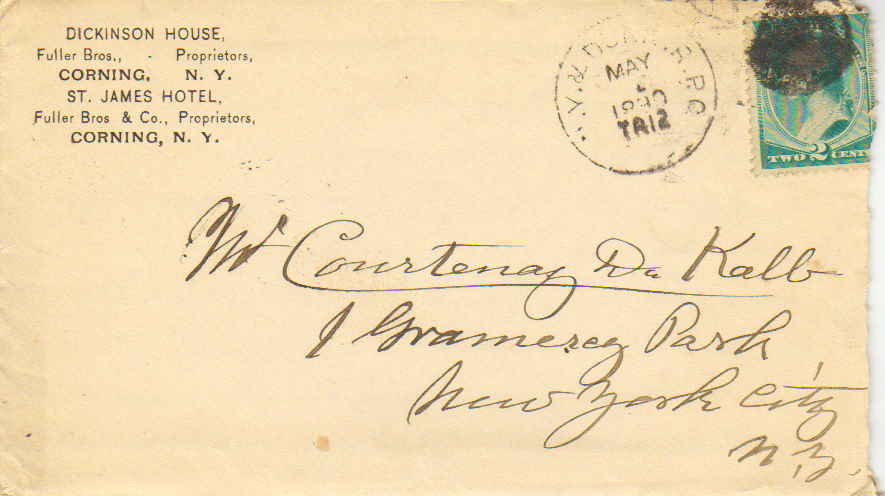 DICKINSON HOUSE,
Fuller Bros., - Proprietors,
CORNING, N. Y.
ST. JAMES HOTEL,
Fuller Bros & Co., Proprietors,
CORNING, N. Y.
N.Y. & DUNK. R.P.O.
MAY
TR12
TWO 2 CENTS
Mr Courtenay De Kalb
1 Gramercy Park
New York City
N.Y.